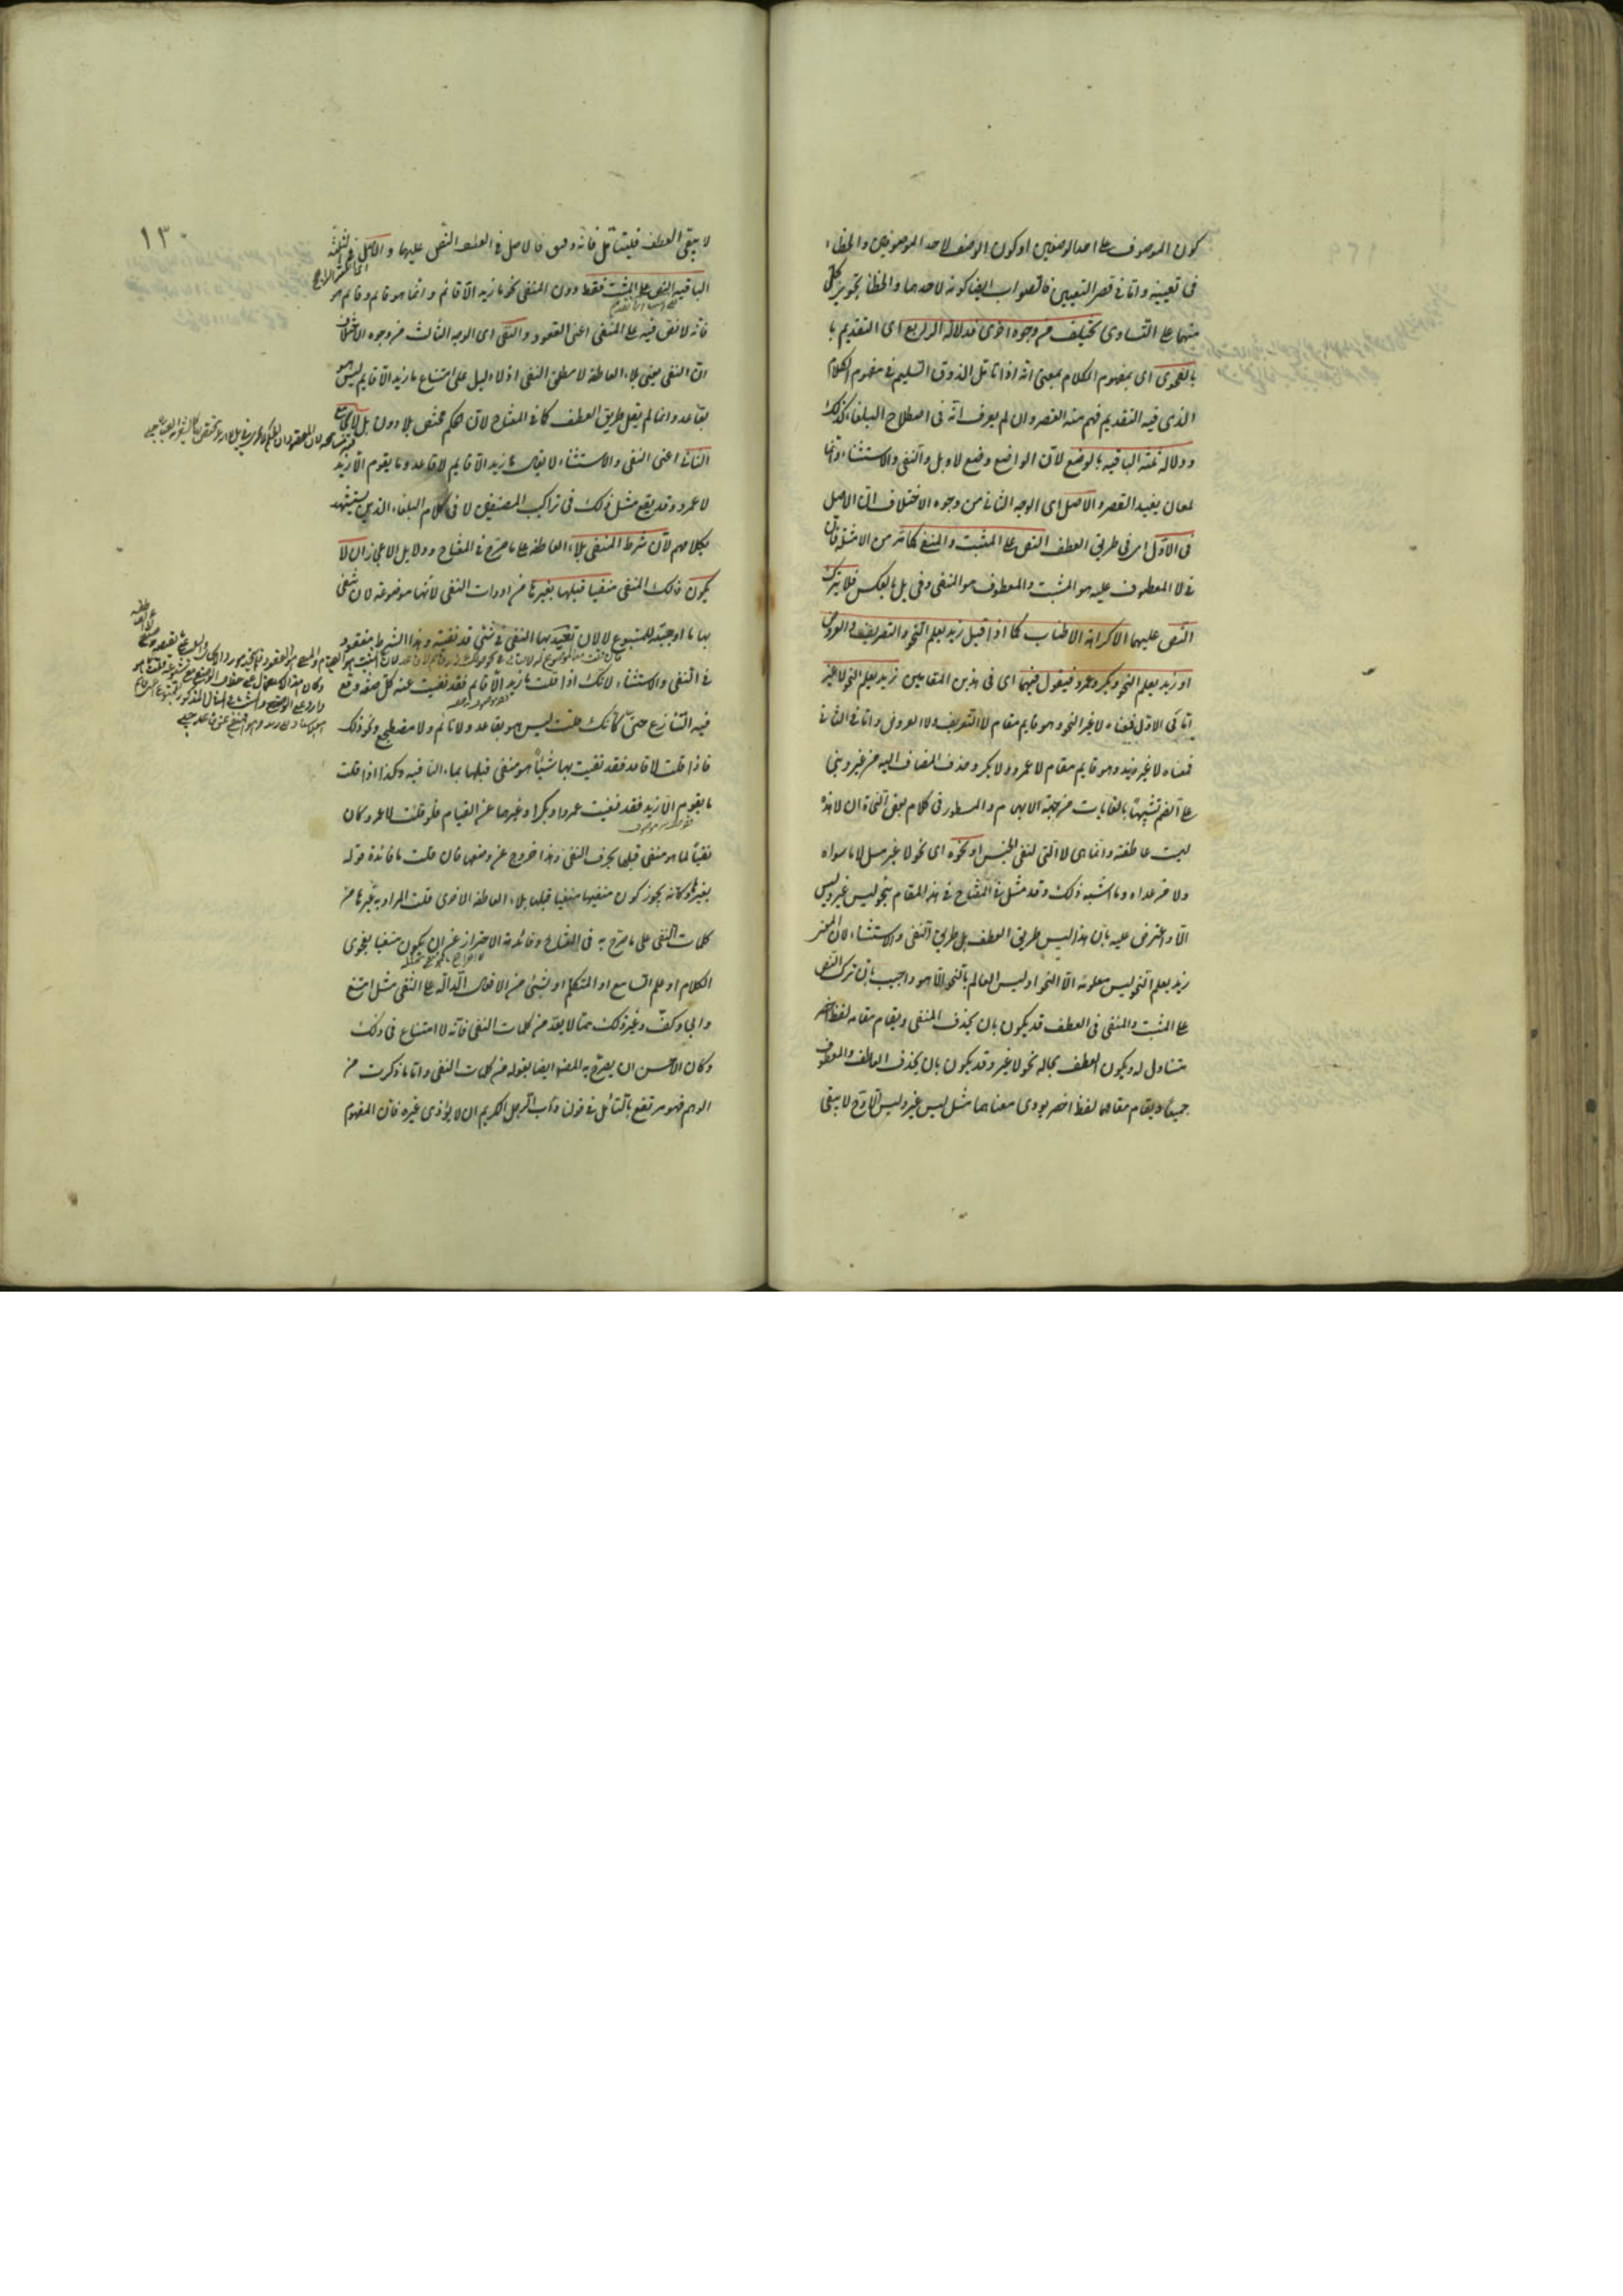 كون الموصوف على احد الوصفين او كون الوصف لاحد الموصوفين والخطاء
فى تعيينه واما فى قصر التعيين فالصواب ايضا كونه لاحدهما والخطا تجويز كل
منهما على التساوى تختلف من وجوه اخرى فدلالة الرابع اى التقديم با
بالفحوى اى بمفهوم الكلام بمعنى انه اذا تأمل الذوق السليم فى مفهوم الكلام
الذى فيه التقديم فهم منه القصر وان لم يعرف انه فى اصطلاح البلغاء كذلك
ودلالة الباقيه بالوضع لان الواضع وضع لا وبل والنفى والاستثناء وانما
لمعان يفيد القصر والاصل اى الوجه الثانى من وجوه الاختلاف ان الاصل
فى الاول اى فى طريق العطف النص على المثبت والمنفى كما مر من الامثلة فان
فى لا المعطوف عليه هو المثبت والمعطوف هو المنفى وفى بل بالعكس فلا يترك
النص عليهما الا كراهة الاطناب كما اذا قيل زيد يعلم النحو والتصريف والعروض
او زيد يعلم النحو وبكر وعمرو فيقول فيهما اى فى هذين المقامين زيد يعلم النحو لا غير
اما فى الاول فمعناه لا غير النحو وهو قايم مقام لا التصريف ولا العروض واما فى الثانى
فمعناه لا غير زيد وهو قايم مقام لا عمرو ولا بكر وحذف المضاف اليه من غير وبنى
على الضم تشبيها بالغايات من جهة الابهام والمسطور فى كلام بعض النحاة ان لا هذه
ليست عاطفة وانما هى لا التى لنفى الجنس او نحوه اى نحو لا غير مثل لا ما سواه
ولا من عداه وما اشبه ذلك وقد مثل فى المفتاح فى هذا المقام بنحو ليس غير وليس
الا واعترض عليه بان هذا ليس طريق العطف بل طريق النفى والاستثناء لان المعنى
زيد يعلم النحو ليس معلومه الا النحو او ليس العالم بالنحو الا هو واجيب بان ترك النص
على المثبت والمنفى فى العطف قد يكون بان يحذف المنفى ويقام مقامه لفظ اخصر
متناول له ويكون العطف بحاله نحو لا غير وقد يكون بان يحذف العاطف والمعطوف
جميعا ويقام مقامهما لفظ اخصر يودى معناهما مثل ليس غير وليس الا وح لا يبقى
١٣٠
لا يبقى العطف فليتأمل فانه دقيق فالاصل فى العطف النص عليهما والاصل فى الثلثة
الباقيه النص على المثبت فقط دون المنفى نحو ما زيد الا قائم وانما هو قايم وقايم هو
فانه لا نص فيه على المنفى اعنى القعود والنفى اى الوجه الثالث من وجوه الاختلاف
ان النفى يعنى بلا العاطفة لا مطلق النفى اذ لا دليل على امتناع ما زيد الا قايم ليس هو
بقاعد وانما لم يقل طريق العطف كما فى المفتاح لان الحكم مختص بلا دون بل لا يجامع
الثانى اعنى النفى والاستثناء لا يقال ما زيد الا قايم لا قاعد وما يقوم الا زيد
لا عمرو وقد يقع مثل ذلك فى تراكيب المصنفين لا فى كلام البلغاء الذين يستشهد
بكلامهم لان شرط المنفى بلا العاطفة على ما صرح فى المفتاح ودلايل الاعجاز ان لا
يكون ذلك المنفى منفيا قبلها بغيرها من ادوات النفى لانها موضوعة لان تنفى
بها ما اوجبته للمتبوع لا لان تعيد بها النفى فى شئ قد نفيته وهذا الشرط مفقود
فى النفى والاستثناء لانك اذا قلت ما زيد الا قايم فقد نفيت عنه كل صفة وقع
فيه التنازع حتى كانك قلت ليس هو بقاعد ولا نائم ولا مضطجع ونحو ذلك
فاذا قلت لا قاعد فقد نفيت بها شيئا هو منفى قبلها بما النافيه وكذا اذا قلت
ما يقوم الا زيد فقد نفيت عمروا وبكرا وغيرهما عن القيام فلو قلت لا عمرو كان
نفيا لما هو منفى قبلها بحرف النفى وهذا خروج عن وضعها فان قلت ما فائدة قوله
بغيرها وكانه يجوز كون منفيها منفيا قبلها بلا العاطفة الاخرى قلت المراد بغيرها من
كلمات النفى على ما صرح به فى المفتاح وفائدته الاحتراز عن ان يكون منفيا بفحوى
الكلام او علم السامع او المتكلم او بشئ من الافعال الدالة على النفى مثل امتنع
وابى وكف وغير ذلك مما لا يعد من كلمات النفى فانه لا امتناع فى ذلك
وكان الاحسن ان يصرح به المص ايضا بقوله من كلمات النفى واما ما ذكرت من
الوهم فهو مرتفع بالتأمل فى قولنا دأب الرجل الكريم ان لا يؤذى غيره فان المفهوم